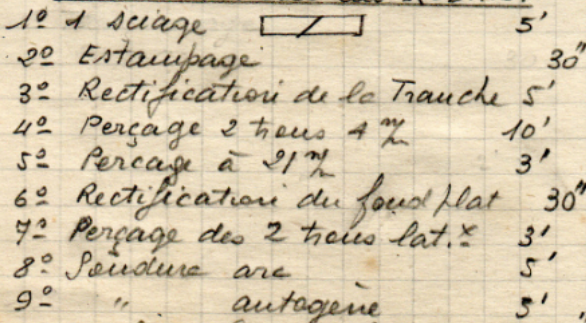 1º 1 sciage 5'
2º Estampage 30"
3º Rectification de la Tranche 5'
4º Perçage 2 trous 4 m/m 10'
5º Percage à 21 m/m 3'
6º Rectification du fond plat 30"
7º Perçage des 2 trous lat.x 3'
8º Soudure arc 5'
9º " autogène 5'